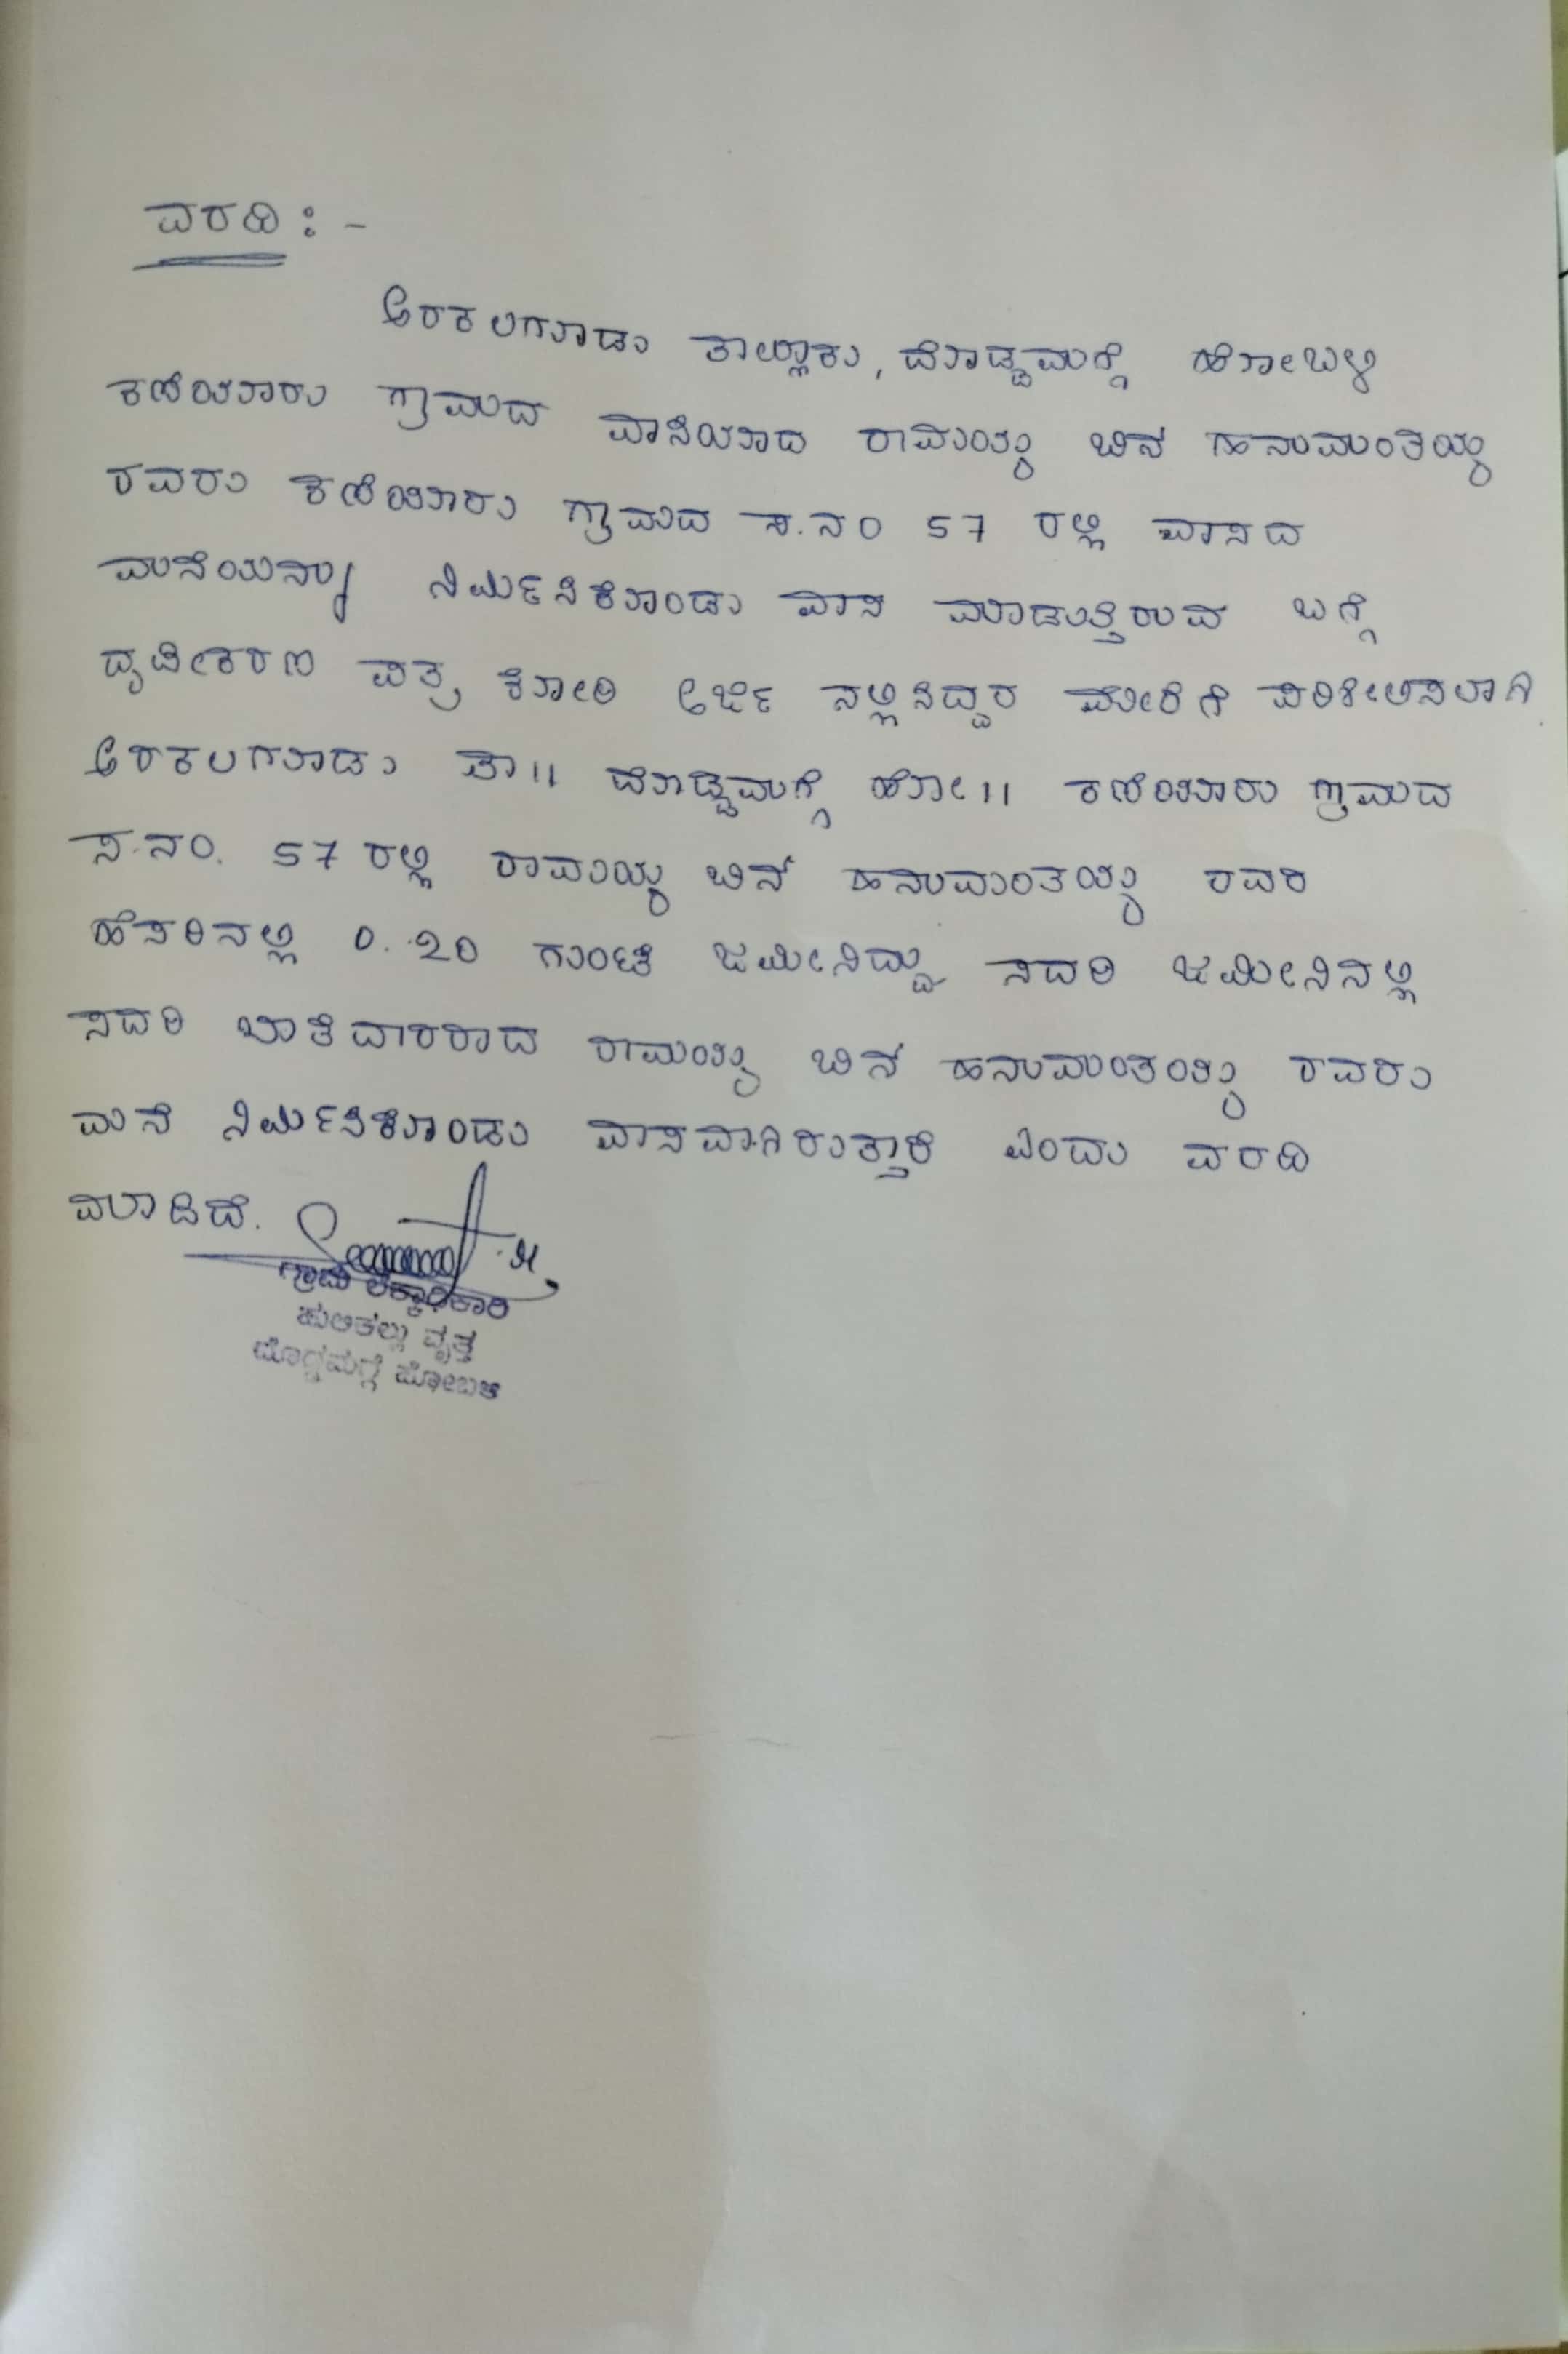 ವರದಿ :-
ಅರಕಲಗೂಡು ತಾಲ್ಲೂಕು, ದೊಡ್ಡಮಗ್ಗೆ ಹೋಬಳಿ
ಕಣಿಯಾರು ಗ್ರಾಮದ ವಾಸಿಯಾದ ರಾಮಯ್ಯ ಬಿನ್ ಹನುಮಂತಯ್ಯ
ರವರು ಕಣಿಯಾರು ಗ್ರಾಮದ ಸ.ನಂ 57 ರಲ್ಲಿ ವಾಸದ
ಮನೆಯನ್ನು ನಿರ್ಮಿಸಿಕೊಂಡು ವಾಸ ಮಾಡುತ್ತಿರುವ ಬಗ್ಗೆ
ದೃಢೀಕರಣ ಪತ್ರ ಕೋರಿ ಅರ್ಜಿ ಸಲ್ಲಿಸಿದ್ದರ ಮೇರೆಗೆ ಪರಿಶೀಲಿಸಲಾಗಿ
ಅರಕಲಗೂಡು ತಾ|| ದೊಡ್ಡಮಗ್ಗೆ ಹೋ|| ಕಣಿಯಾರು ಗ್ರಾಮದ
ಸ.ನಂ. 57 ರಲ್ಲಿ ರಾಮಯ್ಯ ಬಿನ್ ಹನುಮಂತಯ್ಯ ರವರ
ಹೆಸರಿನಲ್ಲಿ 0.20 ಗುಂಟೆ ಜಮೀನಿದ್ದು ಸದರಿ ಜಮೀನಿನಲ್ಲಿ
ಸದರಿ ಖಾತೆದಾರರಾದ ರಾಮಯ್ಯ ಬಿನ್ ಹನುಮಂತಯ್ಯ ರವರು
ಮನೆ ನಿರ್ಮಿಸಿಕೊಂಡು ವಾಸವಾಗಿರುತ್ತಾರೆ ಎಂದು ವರದಿ
ಮಾಡಿದೆ.
ಗ್ರಾಮ ಲೆಕ್ಕಾಧಿಕಾರಿ
ಹುಲಿಕಲ್ಲು ವೃತ್ತ
ದೊಡ್ಡಮಗ್ಗೆ ಹೋಬಳಿ